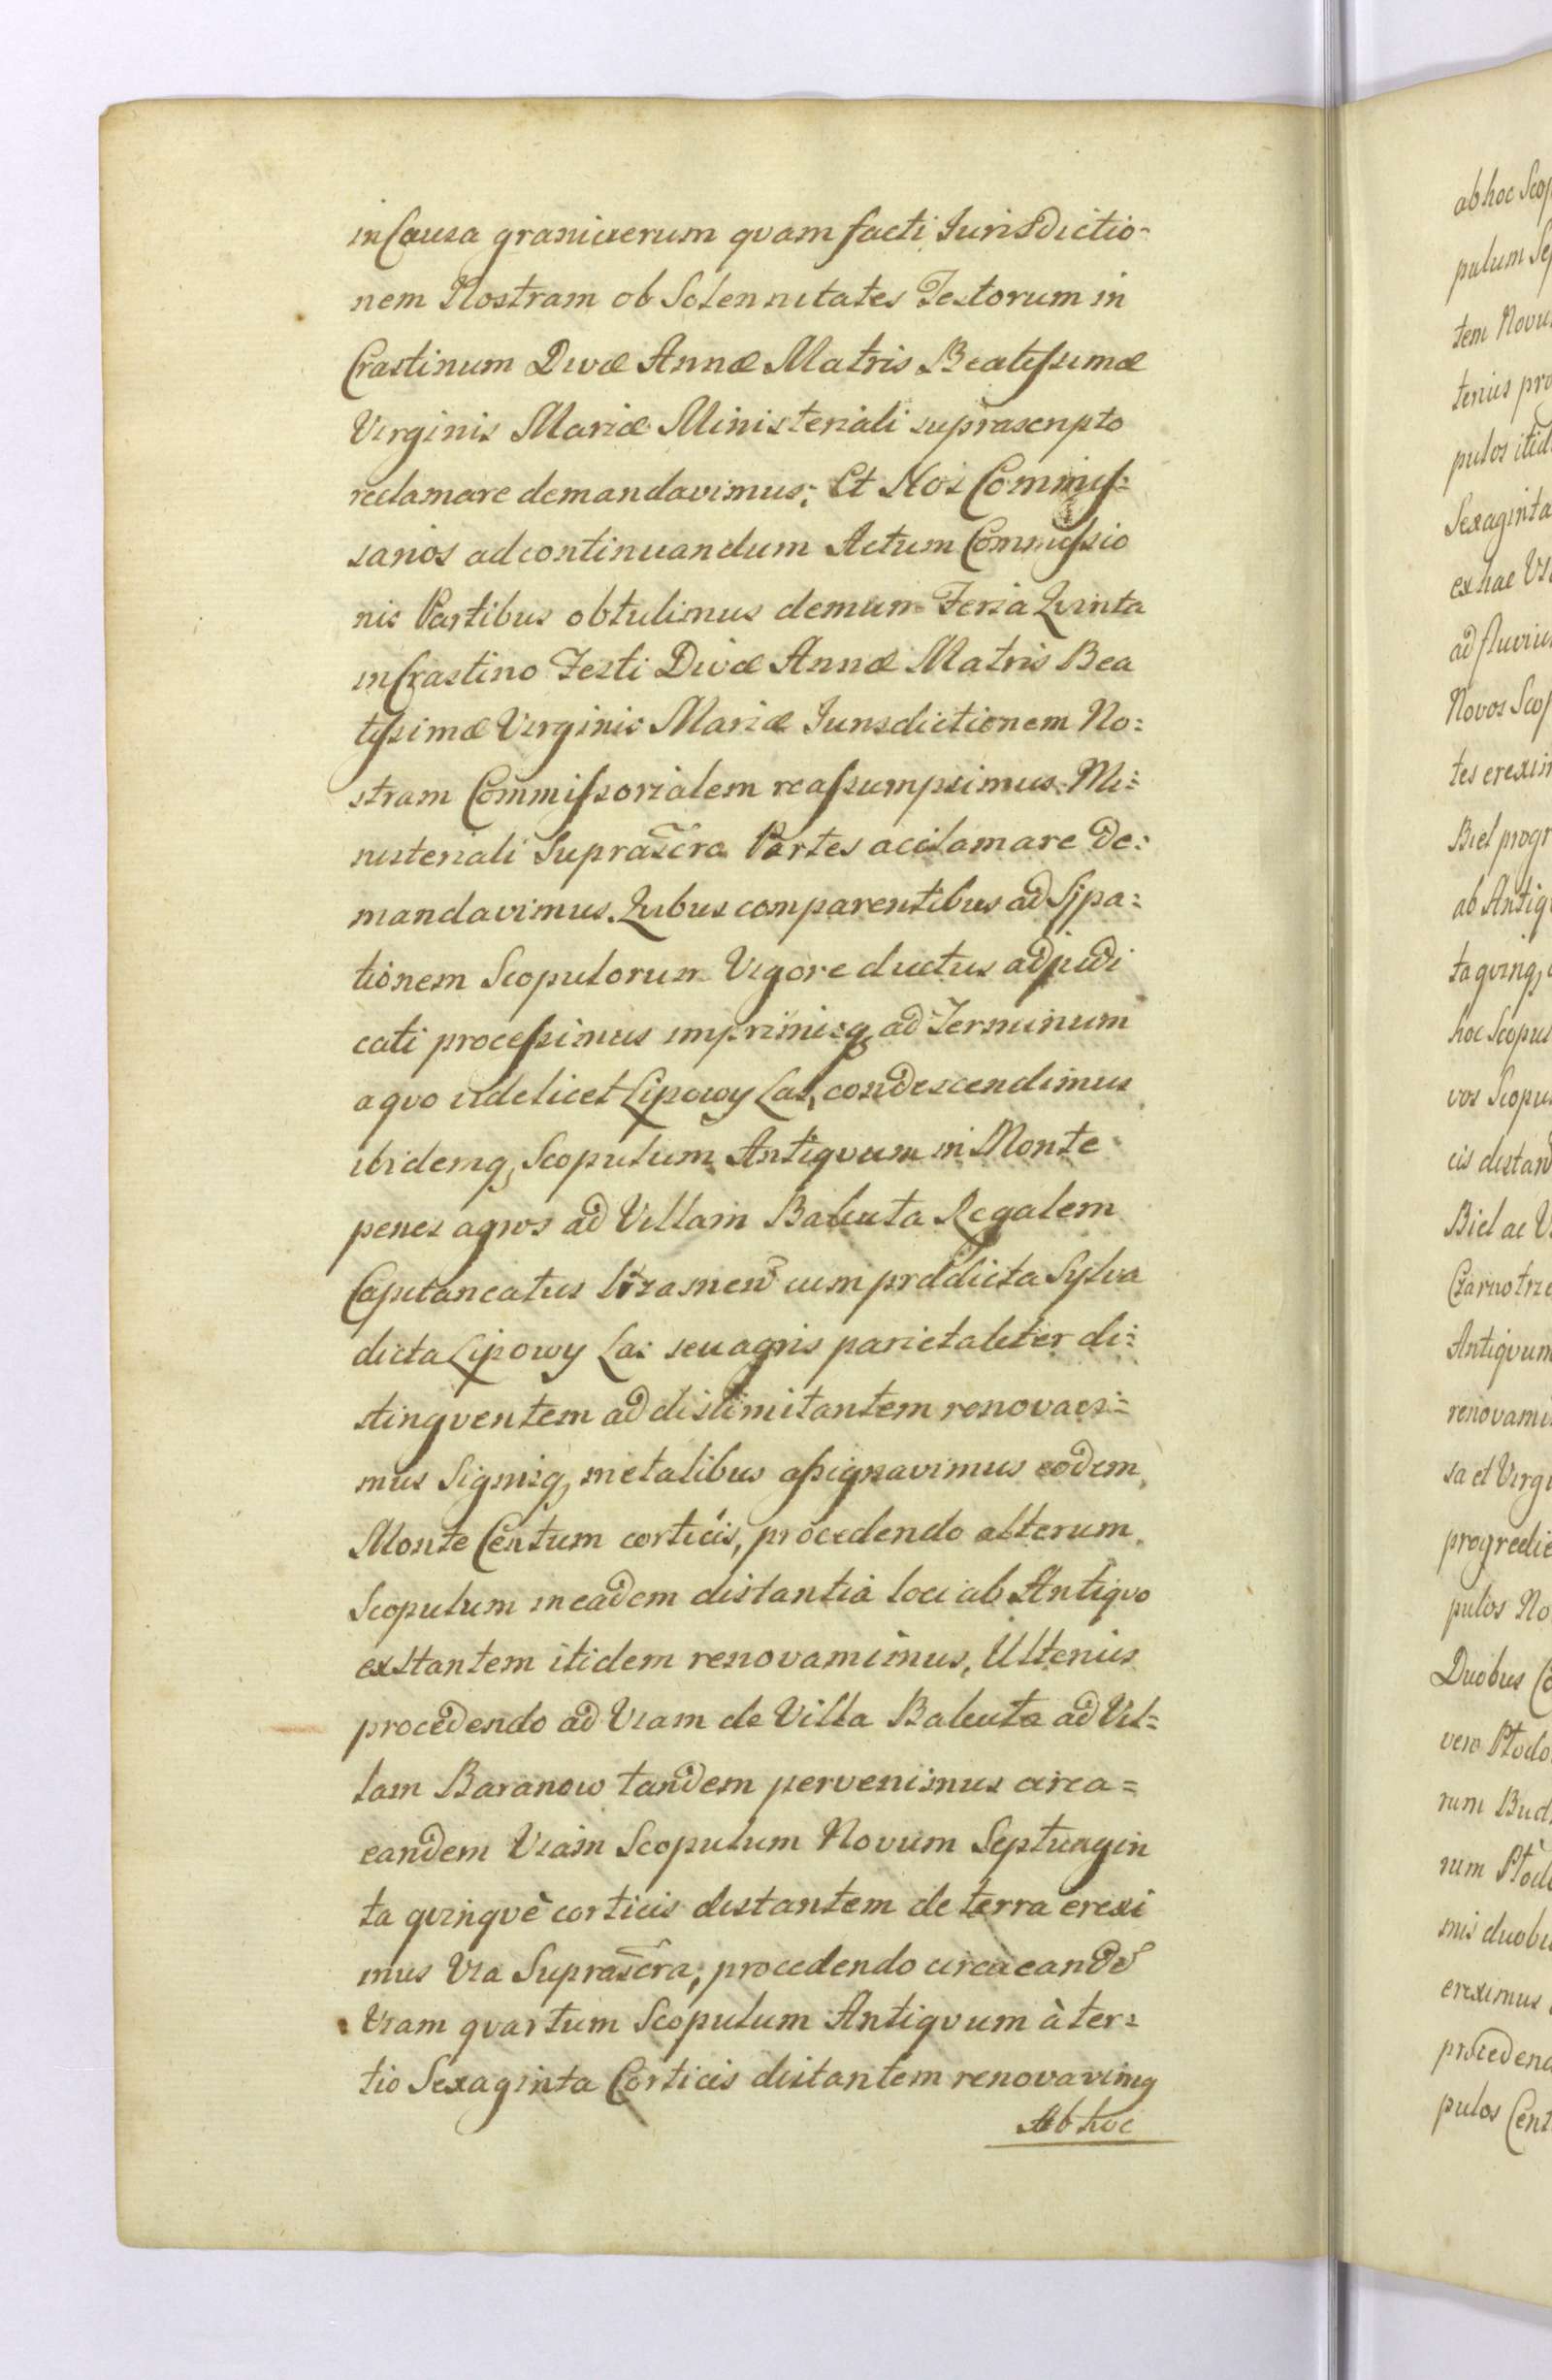 in Causa granicierum quam facti Jurisdictio-
nem Nostram ob Solennitates Festorum in
Crastinum Divæ Annæ Matris Beatissimæ
Virginis Mariæ Ministeriali suprascripto
reclamare demandavimus; Et Nos Commis:
sarios ad continuandum Actum Commissio
nis Partibus obtulimus demum Feria Qvinta
in Crastino Festi Divæ Annæ Matris Bea
tissimæ Virginis Mariæ Jurisdictionem No:
stram Commissorialem reassumpsimus Mi:
nisteriali Suprascr̃o Partes acclamare de:
mandavimus. Qvibus comparentibus ad Sypa:
tionem Scopulorum Vigore ductus adjudi
cati processimus imprimisq, ad Terminum
a qvo videlicet Lipowy Las, condescendimus
ibidemq, Scopulum Antiqvum in Monte
penes agros ad Villam Babuta Regalem
Capitaneatus cum prædicta Sylva
dicta Lipowy Las seu agris parietaliter di:
stinqventem ad dislimitantem renovavi:
mus Signisq, metalibus assignavimus eodem
Monte Centum corticis, procedendo alterum
Scopulum in eadem distantia loci ab Antiqvo
exstantem itidem renovamimus, Ulterius
procedendo ad Viam de Villa Babuta ad Vil=
lam Baranow tandem pervenimus circa=
eandem Viam Scopulum Novum Septuagin
ta qvinqvè corticis distantem de terra erexi
mus Via Suprascr̃a; procedendo circa eandẽ
Viam qvartum Scopulum Antiqvum à ter:
tio Sexaginta Corticis distantem renovavimq
Ab hoc
ab hoc Scop
pulum Sep
tem Novu
terius pro
pulos itid
Sexaginta
ex hac Vi
ad fluviu
Novos Scop
tes erexim
Biel progr
ab Antiqv
ta qvinq,
hoc Scopul
vos Scopu
cis distan
Biel ac V
Czarnotrze
Antiqvum
renovami
sa et Virgu
progredie
pulos No
Duobus Co
vero Ptodo
rum Bud
rum Ptod
mis duobu
ereximus
procedend
pulos Cent